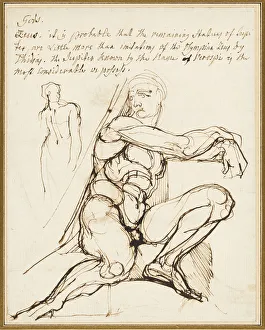 Gods.
Zeus. it is probable that the remaining Statues of Jupi
ter are little more than imitations of the Olympian Zeus by
Phidias. the Jupiter known by the Name of Verospi is the
most considerable we possess.